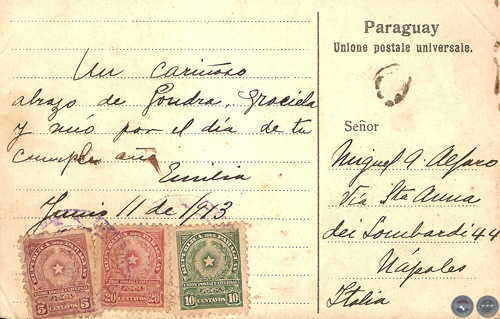 Un cariñoso
abrazo de Gondra, Graciela
y mío por el día de tu
cumple año
Emilia
Junio 11 de 1913
Paraguay
Unione postale universale.
Señor
Miguel A. Alfaro
Vía Sta Anna
dei Lombardi 44
Nápoles
Italia
REPUBLICA DEL PARAGUAY
UNION POSTAL UNIVERSAL
5 5
CENTAVOS
REPUBLICA DEL PARAGUAY
UNION POSTAL UNIVERSAL
20 20
CENTAVOS
REPUBLICA DEL PARAGUAY
UNION POSTAL UNIVERSAL
10 10
CENTAVOS